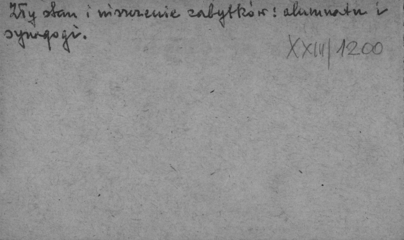 Zły stan i niszczenie zabytków: alumnatu i
synagogi.
XXIII/1200